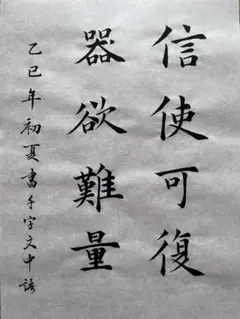 信使可復
器欲難量
乙巳年初夏書千字文中語